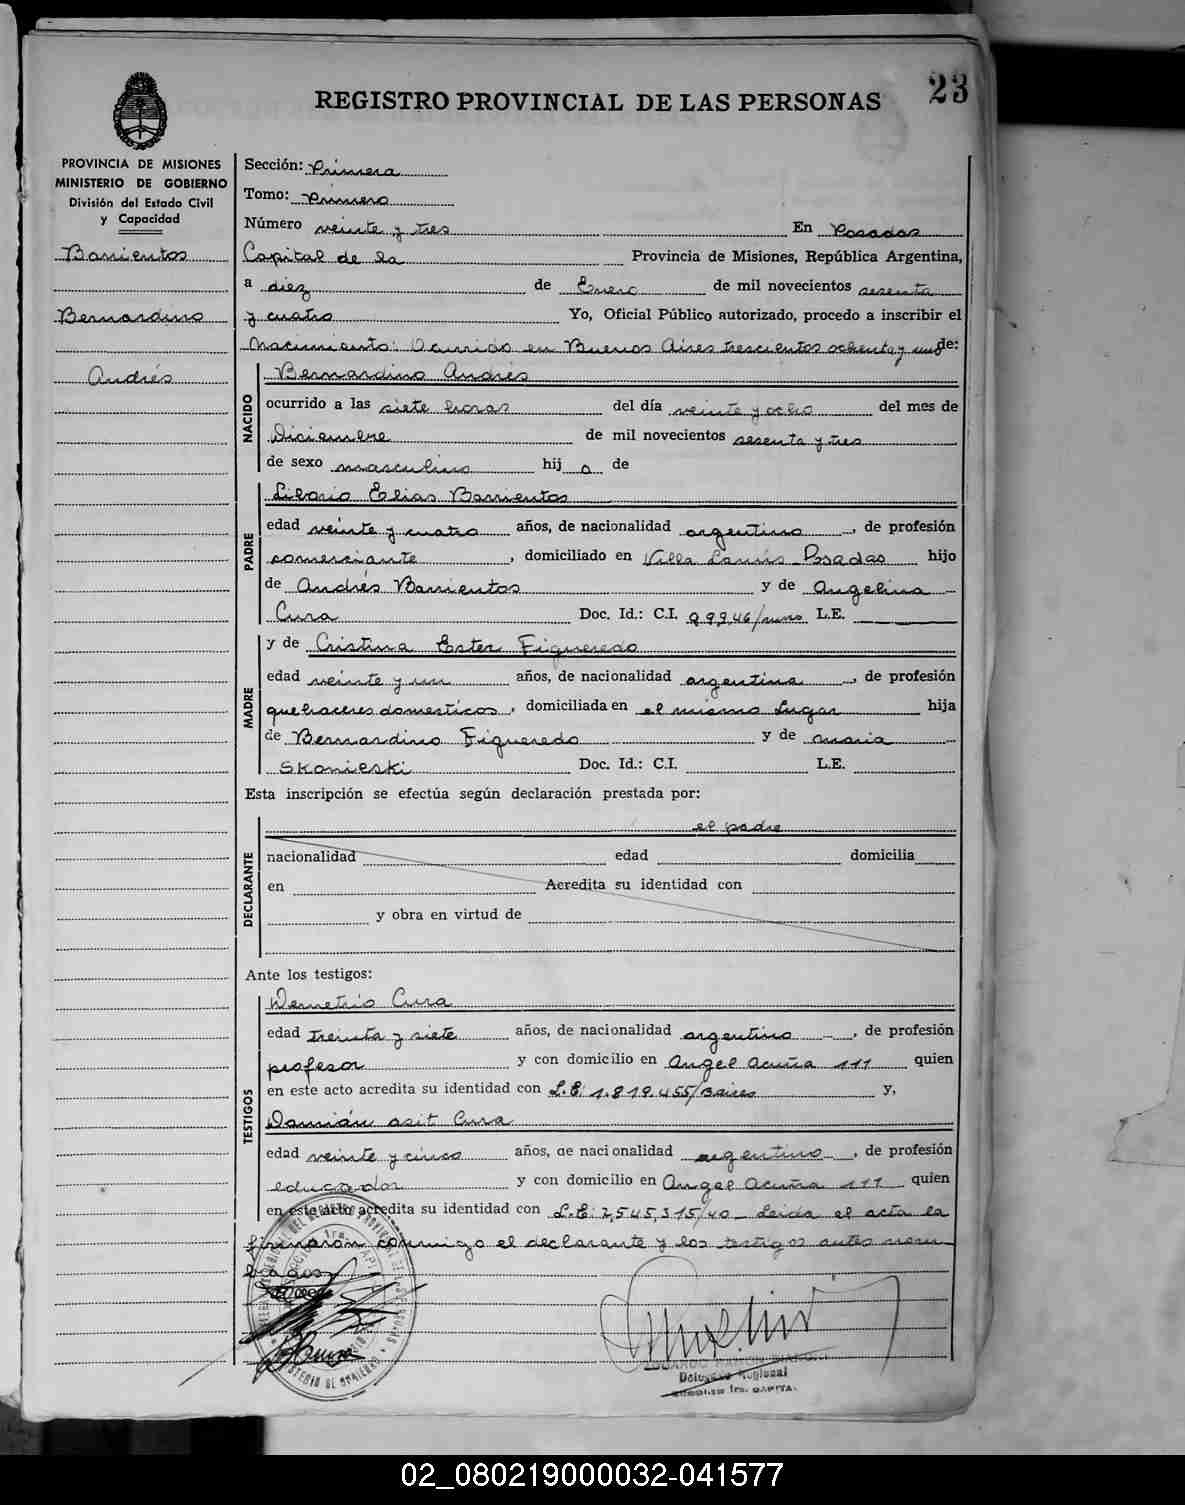 23
REGISTRO PROVINCIAL DE LAS PERSONAS
PROVINCIA DE MISIONES
MINISTERIO DE GOBIERNO
División del Estado Civil
y Capacidad
Barrientos
Bernardino
Andrés
Sección: Primera
Tomo: Primero
Número veinte y tres En Posadas
Capital de la Provincia de Misiones, República Argentina,
a diez de Enero de mil novecientos sesenta
y cuatro Yo, Oficial Público autorizado, procedo a inscribir el
Nacimiento: Ocurrido en Buenos Aires trescientos ochenta y uno de:
NACIDO
Bernardino Andrés
ocurrido a las siete horas del día veinte y ocho del mes de
Diciembre de mil novecientos sesenta y tres
de sexo masculino hij o de
PADRE
Liborio Elias Barrientos
edad veinte y cuatro años, de nacionalidad argentino, de profesión
comerciante, domiciliado en Villa Lanús - Posadas hijo
de Andrés Barrientos y de Angelina
Cura Doc. Id.: C.I. 99946/mns L.E.
MADRE
y de Cristina Ester Figueredo
edad veinte y un años, de nacionalidad argentina, de profesión
quehaceres domesticos, domiciliada en el mismo lugar hija
de Bernardino Figueredo y de Maria
Skonieski Doc. Id.: C.I. L.E.
Esta inscripción se efectúa según declaración prestada por:
DECLARANTE
el padre
nacionalidad edad domicilia
en Acredita su identidad con
y obra en virtud de
Ante los testigos:
TESTIGOS
Demetrio Cura
edad treinta y siete años, de nacionalidad argentino, de profesión
profesor y con domicilio en Angel Acuña 111 quien
en este acto acredita su identidad con L.E: 1.819.455/Baires y,
Damián asit Cura
edad veinte y cinco años, de nacionalidad argentino, de profesión
educador y con domicilio en Angel Acuña 111 quien
en este acto acredita su identidad con L.E: 2,545,315/40_ Leida el acta la
firmaron conmigo el declarante y los testigos antes nom
brados
Delegado Regional
02_080219000032-041577